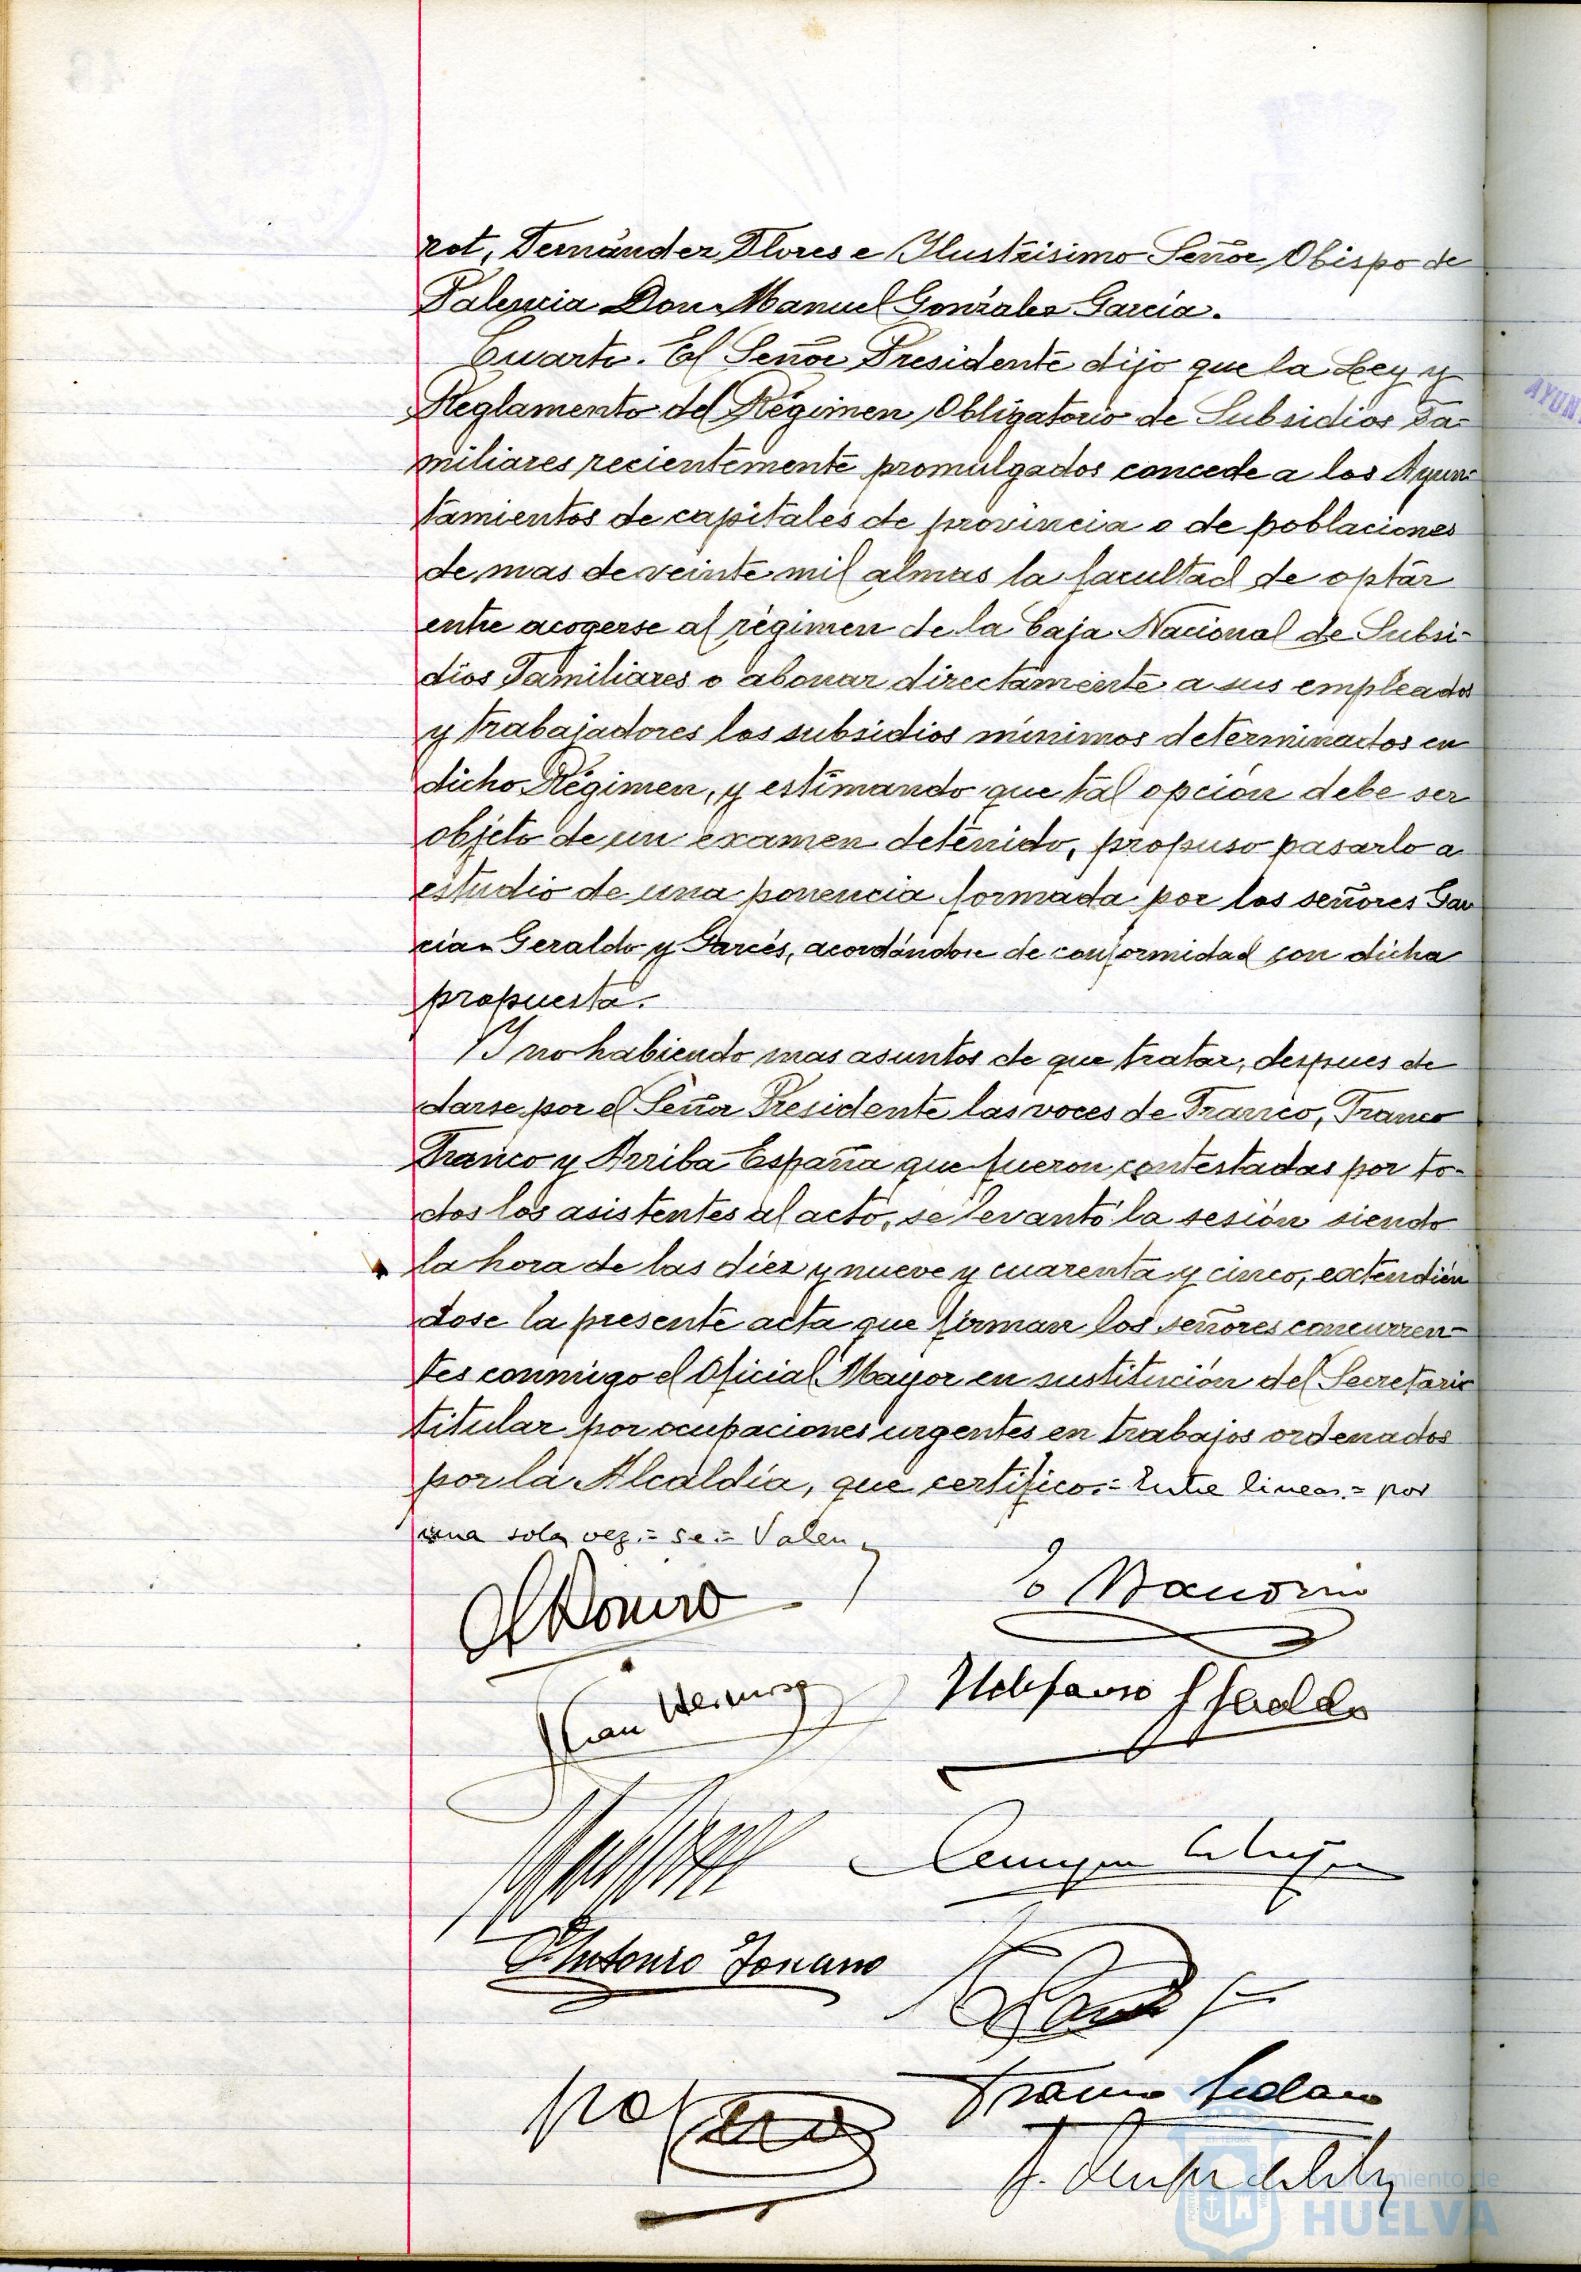 rot, Fernández Flores e Ilustrísimo Señor Obispo de
Palencia Don Manuel González García.
Cuarto. El Señor Presidente dijo que la Ley y
Reglamento del Régimen Obligatorio de Subsidios Fa-
miliares recientemente promulgados concede a los Ayun-
tamientos de capitales de provincia o de poblaciones
de mas de veinte mil almas la facultad de optar
entre acogerse al régimen de la Caja Nacional de Subsi-
dios Familiares o abonar directamente a sus empleados
y trabajadores los subsidios mínimos determinados en
dicho Régimen, y estimando que tal opción debe ser
objeto de un examen detenido, propuso pasarlo a
estudio de una ponencia formada por los señores Gar
cía- Geraldo y Garcés, acordándose de conformidad con dicha
propuesta.
Y no habiendo mas asuntos de que tratar, despues de
darse por el Señor Presidente las voces de Franco, Franco
Franco y Arriba España que fueron contestadas por to-
dos los asistentes al acto, se levantó la sesión siendo
la hora de las diez y nueve y cuarenta y cinco, extendién
dose la presente acta que firman los señores concurren-
tes conmigo el Oficial Mayor en sustitución del Secretario
titular por ocupaciones urgentes en trabajos ordenados
por la Alcaldía, que certifico.= Entre lineas.= por
una sola vez.= se.= Valen
Ildefonso
Antonio
AYUN
Ayuntamiento de
HUELVA